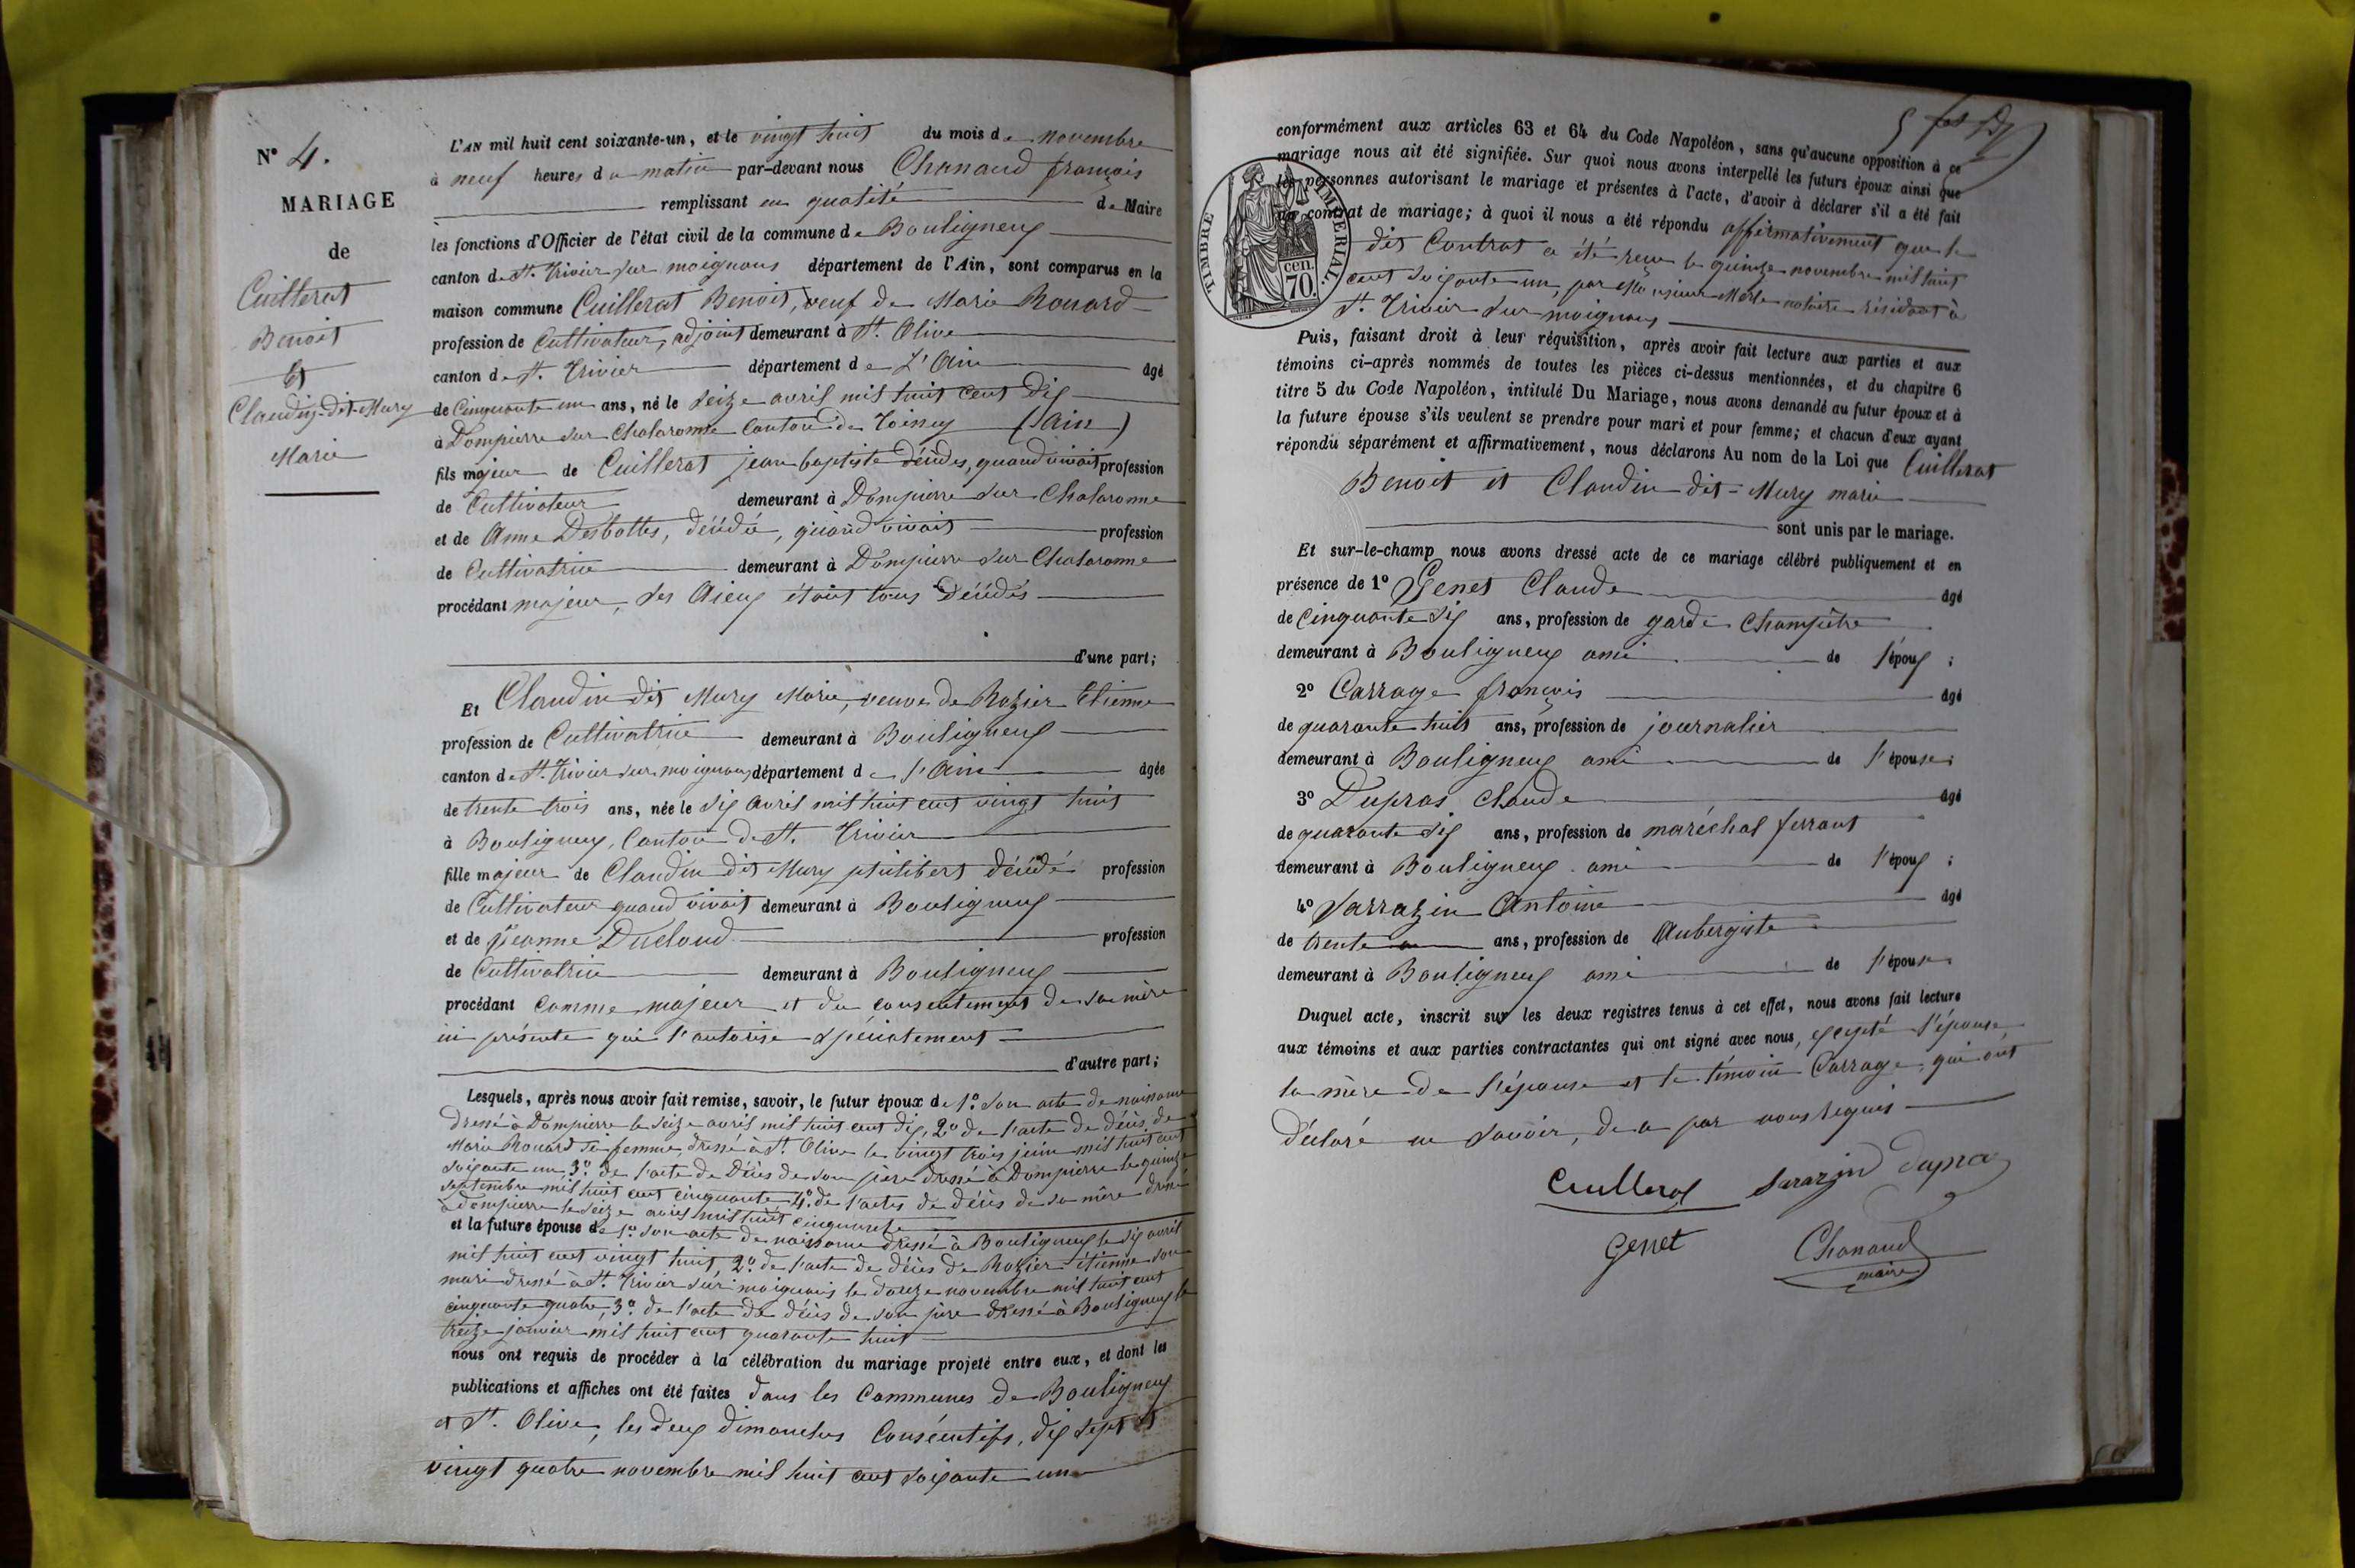 N° 4.
MARIAGE
de
Cuillerat
Benoit
Et
Claudin-dit-Mury
Marie
L'AN mil huit cent soixante-un, et le vingt huit du mois de novembre
à neuf heures du matin par-devant nous Chanaud françois
remplissant en qualité de Maire
les fonctions d'Officier de l'état civil de la commune de Bouligneux
canton de St. Trivier sur moignans département de l'Ain, sont comparus en la
maison commune Cuillerat Benoit, veuf de Marie Rouard
profession de Cultivateur, adjoint demeurant à St. Olive
canton de St. Trivier département de L'Ain âgé
de Cinquante un ans, né le seize avril mil huit cent dix
à Dompierre sur Chalaronne Canton de Toiney (Ain)
fils majeur de Cuillerat jean baptiste décédés, quand vivait profession
de Cultivateur demeurant à Dompierre sur Chalaronne
et de Anne Desbottes, décédée, quand vivait profession
de Cultivatrice demeurant à Dompierre sur Chalaronne
procédant majeur, ses Aieux étant tous Décédés
d'une part;
Et Claudin dit Mury Marie, veuve de Rozier Etienne
profession de Cultivatrice demeurant à Bouligneux
canton de St. Trivier sur moignans département de l'Ain âgée
de trente trois ans, née le dix avril mil huit cent vingt huit
à Bouligneux, Canton de St. Trivier
fille majeur de Claudin dit Mury philibert décédé profession
de Cultivateur quand vivait demeurant à Bouligneux
et de Jeanne Ducloud profession
de Cultivatrice demeurant à Bouligneux
procédant comme majeur et du consentement de sa mère
ici présente qui l'autorise spécialement
d'autre part;
Lesquels, après nous avoir fait remise, savoir, le futur époux de 1° son acte de naissance
dressé à Dompierre le seize avril mil huit cent dix, 2° de l'acte de décès de
Marie Rouard sa femme dressé à St. Olive le vingt trois juin mil huit cent
soixante un 3° de l'acte de Décès de son père dressé à Dompierre le quinze
septembre mil huit cent cinquante 4° de l'actes de décès de sa mère dressé
à Dompierre le seize avril mil huit cinquante
et la future épouse de 1° son acte de naissance dressé à Bouligneux le dix avril
mil huit cent vingt huit, 2° de l'acte de décès de Rozier étienne son
mari dressé à St. Trivier sur moignans le douze novembre mil huit cent
cinquante quatre, 3° de l'acte de décès de son père dressé à Bouligneux le
treize janvier mil huit cent quarante huit
nous ont requis de procéder à la célébration du mariage projeté entre eux, et dont les
publications et affiches ont été faites dans les Communes de Bouligneux
et St. Olive, les deux dimanches Consécutifs, dix sept et
vingt quatre novembre mil huit cent soixante un
conformément aux articles 63 et 64 du Code Napoléon, sans qu'aucune opposition à ce
mariage nous ait été signifiée. Sur quoi nous avons interpellé les futurs époux ainsi que
les personnes autorisant le mariage et présentes à l'acte, d'avoir à déclarer s'il a été fait
un contrat de mariage; à quoi il nous a été répondu affirmativement que le
dit Contrat a été reçu le quinze novembre mil huit
cent soixante un, par Monsieur Merle notaire résidant à
St. Trivier sur moignans
TIMBRE IMPÉRIAL.
cen.
70.
Puis, faisant droit à leur réquisition, après avoir fait lecture aux parties et aux
témoins ci-après nommés de toutes les pièces ci-dessus mentionnées, et du chapitre 6
titre 5 du Code Napoléon, intitulé Du Mariage, nous avons demandé au futur époux et à
la future épouse s'ils veulent se prendre pour mari et pour femme; et chacun d'eux ayant
répondu séparément et affirmativement, nous déclarons Au nom de la Loi que Cuillerat
Benoit et Claudin dit-Mury marie
sont unis par le mariage.
Et sur-le-champ nous avons dressé acte de ce mariage célébré publiquement et en
présence de 1° Genet Claude âgé
de Cinquante dix ans, profession de garde Champêtre
demeurant à Bouligneux ami de l'époux ;
2° Carrage françois âgé
de quarante huit ans, profession de journalier
demeurant à Bouligneux ami de l'épouse;
3° Dupras Claude âgé
de quarante dix ans, profession de maréchal ferrant
demeurant à Bouligneux ami de l'époux ;
4° Sarrazin Antoine âgé
de trente ans, profession de Aubergiste
demeurant à Bouligneux ami de l'épouse
Duquel acte, inscrit sur les deux registres tenus à cet effet, nous avons fait lecture
aux témoins et aux parties contractantes qui ont signé avec nous, excepté l'épouse
la mère de l'épouse et le témoin Carrage, qui ont
déclaré ne savoir, de ce par nous requis
Cuillerat Sarazin Dupra
Genet Chanaud
maire